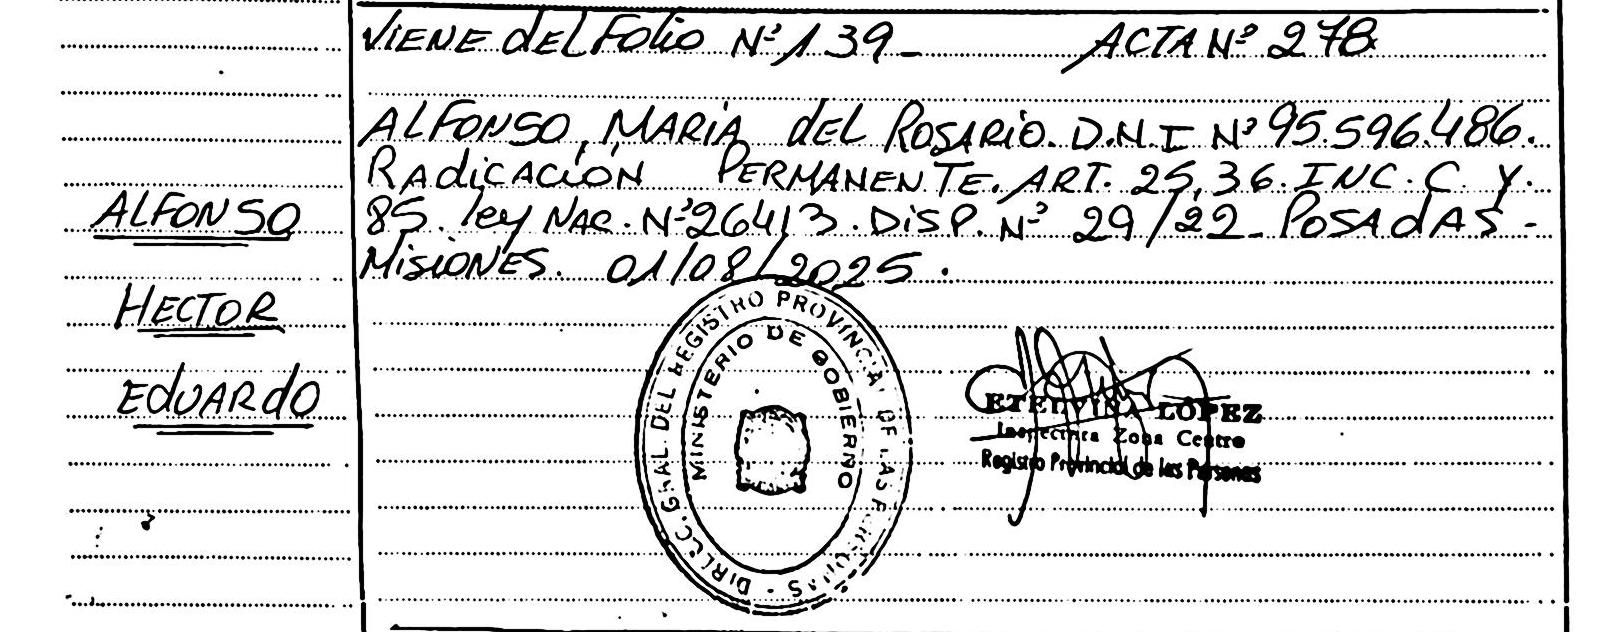 VIENE dEL FOLIO Nº 139_ ACTA Nº 278
ALFONSO, MARIA dEL ROSARIO. D.N.I Nº 95.596.486.
RAdiCACIÓN PERMANENTE. ART. 25, 36. INC. C. Y.
85. ley NAC. Nº 26413. DISP. Nº 29/22_ POSAdAS -
MISIONES. 01/08/2025.
ALFONSO
HECTOR
EdUARdO
DIRECC. GRAL. DEL REGISTRO PROVINCIAL DE LAS PERSONAS -
MINISTERIO DE GOBIERNO
ETELVINA LÓPEZ
Inspectora Zona Centro
Registro Provincial de las Personas